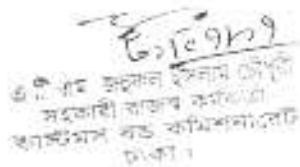 এ টি এম ফজলুল ইসলাম চৌধুরী
সহকারী রাজস্ব কর্মকর্তা
কাস্টমস বন্ড কমিশনারেট
ঢাকা।